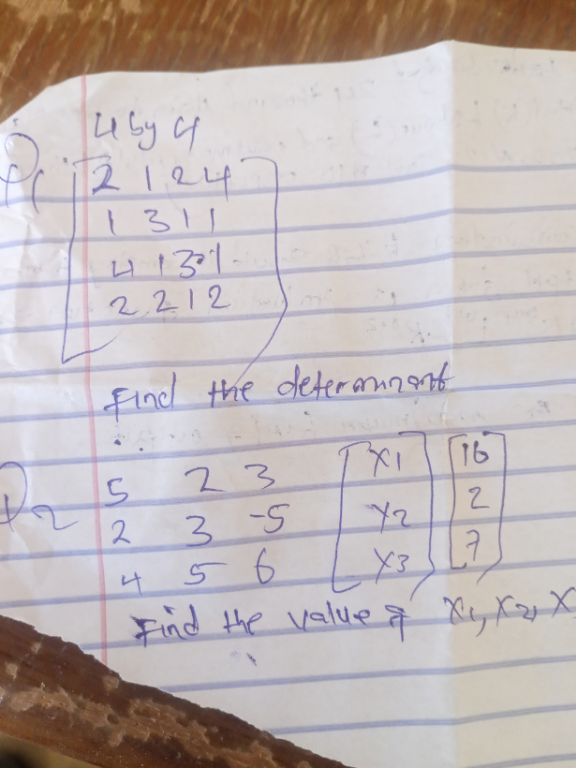 4 by 4
Q1 2 1 2 4
1 3 1 1
4 1 3 1
2 2 1 2
Find the determinant
Q2 5 2 3 X1 16
2 3 -5 X2 2
4 5 6 X3 7
Find the value of X1, X2, X